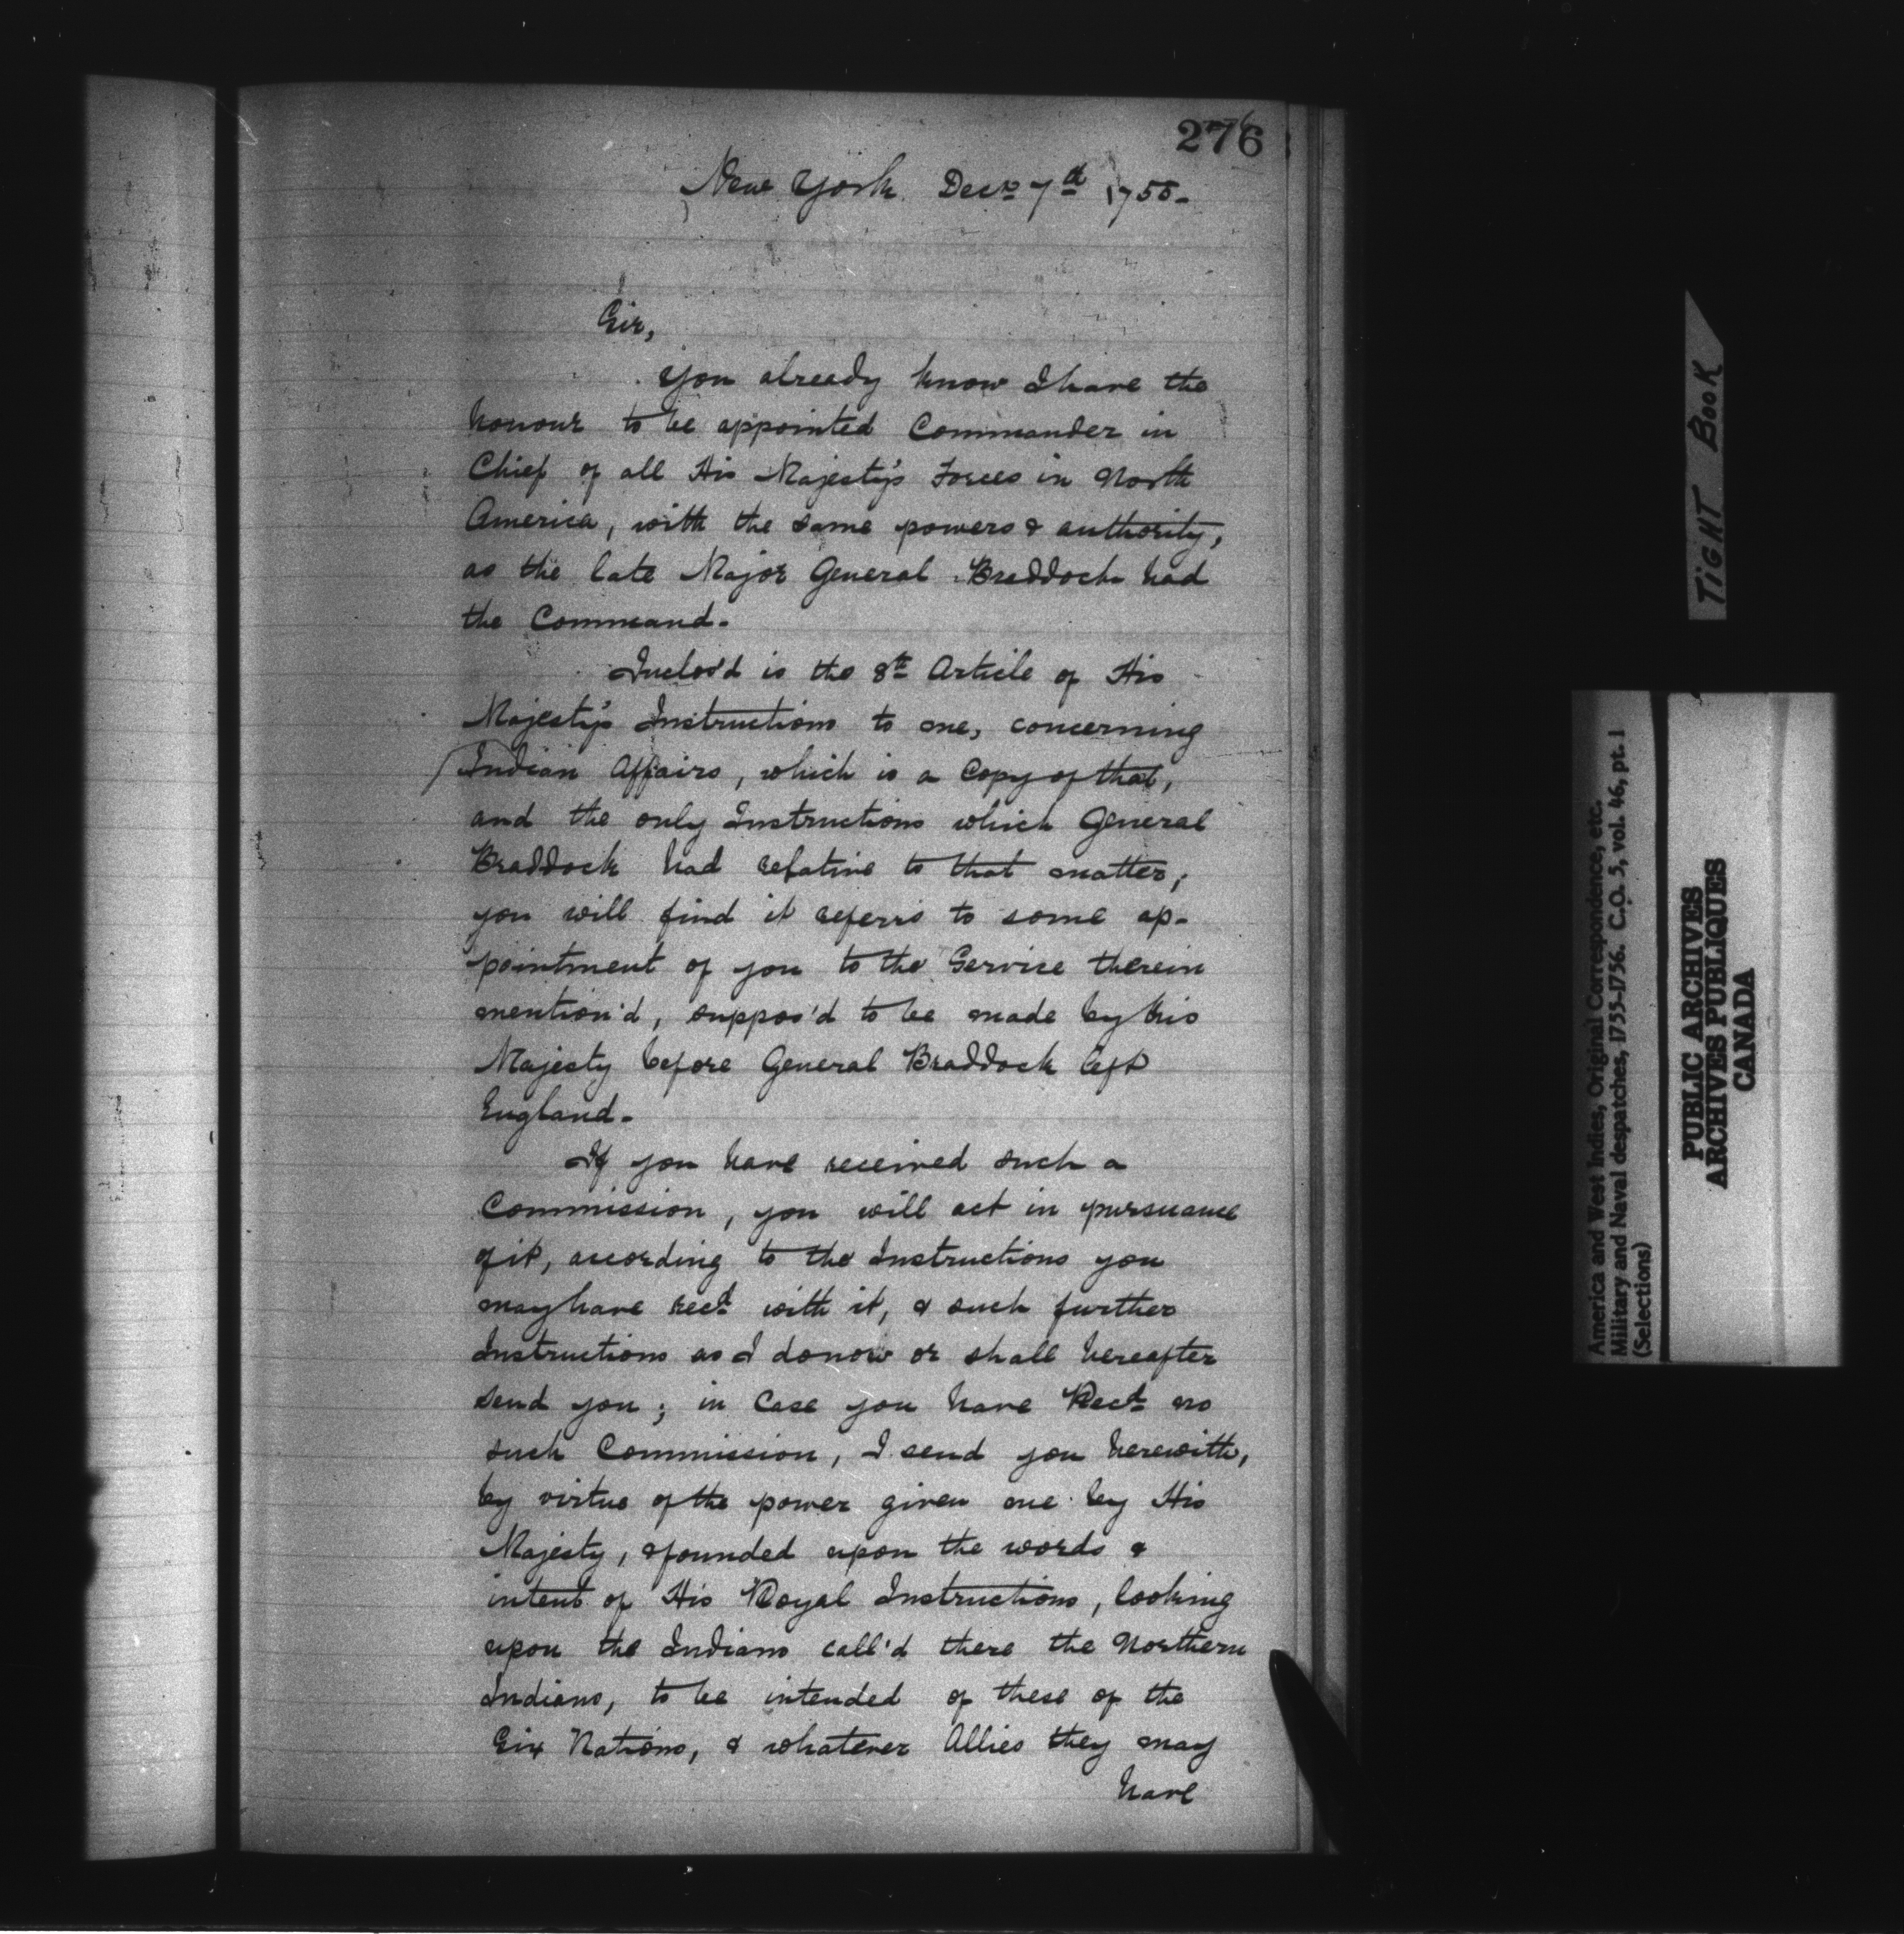 276
New York Decr 7th 1755-
Sir,
You already know I have the
honour to be appointed Commander in
Chief of all His Majesty's Forces in North
America, with the same powers & authority,
as the late Major General Braddock had
the Command-
Inclos'd is the 8th Article of His
Majesty's Instructions to me, concerning
Indian Affairs, which is a Copy of that,
and the only Instructions which General
Braddock had relative to that matter;
you will find it referrs to some ap-
pointment of you to the Service therein
mention'd, suppos'd to be made by his
Majesty before General Braddock left
England-
If you have received such a
Commission, you will act in pursuance
of it, according to the Instructions you
may have recd with it, & such further
Instructions as I do now or shall hereafter
send you; in Case you have Recd no
such Commission, I send you herewith,
by virtue of the power given me by His
Majesty, & founded upon the words &
intent of His Royal Instructions, looking
upon the Indians call'd there the Northern
Indians, to be intended of these of the
Six Nations, & whatever Allies they may
have
TIGHT BOOK
America and West Indies, Original Correspondence, etc.
Military and Naval despatches, 1755-1756. C.O. 5, vol. 46, pt. 1
(Selections)
PUBLIC ARCHIVES
ARCHIVES PUBLIQUES
CANADA